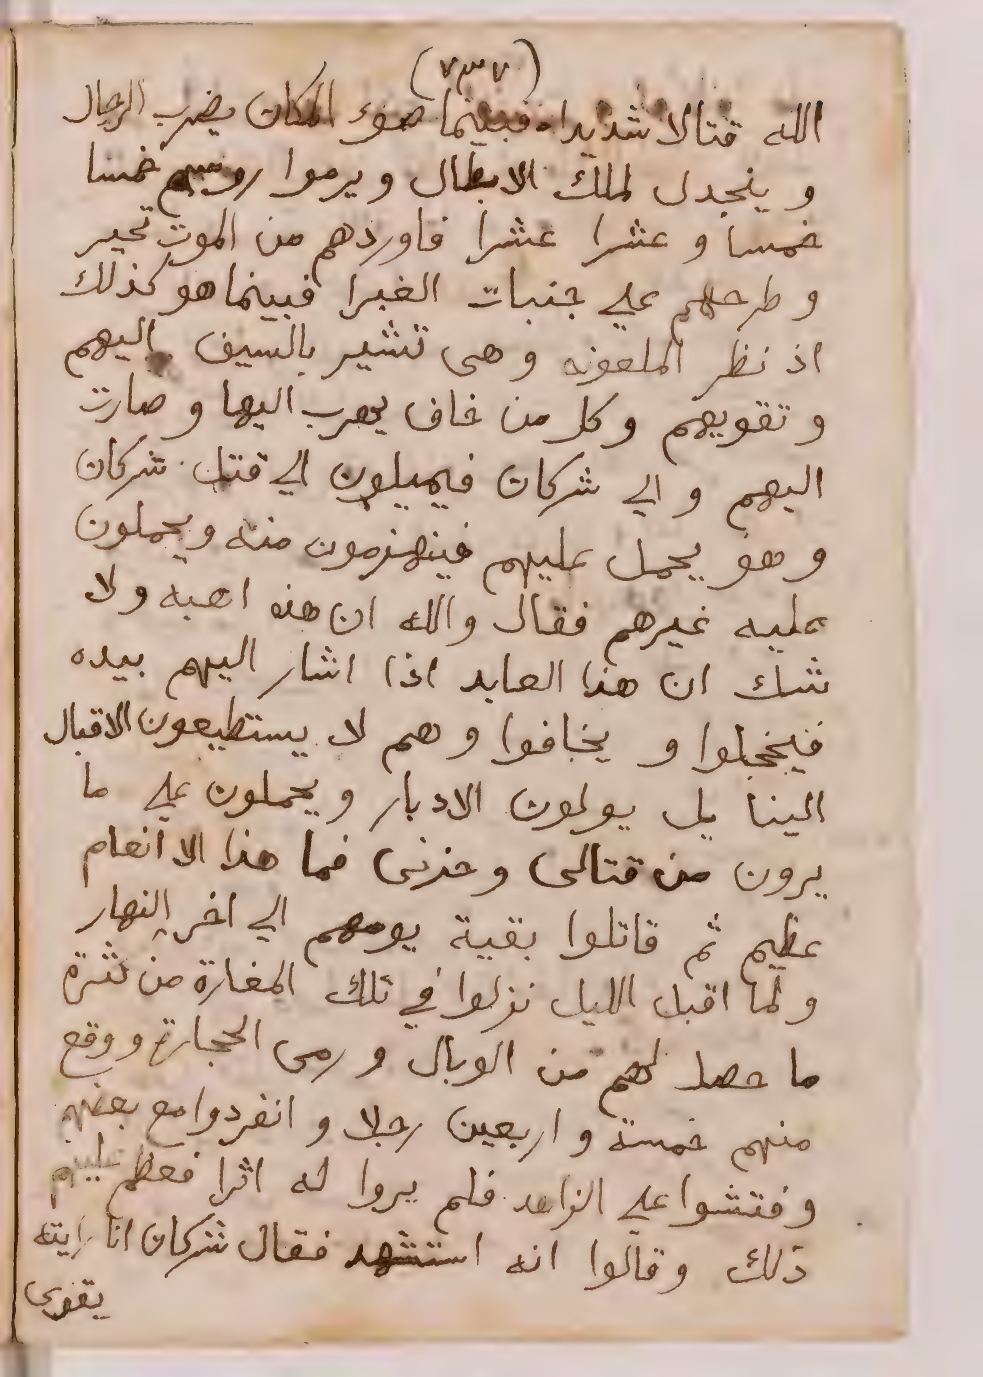 (٧٣٧)
الله قتالا شديدا فبينما ضوء المكان يضرب الرجال
و ينجدل لملك الابطال ويرموا روسهم خمسا
خمسا و عشرا عشرا فاوردهم من الموت تحير
و طرحهم علي جنبات الغبرا فبينما هو كذلك
اذ نظر الملعونه وهى تشير بالسيف اليهم
و تقويهم وكل من خاف يهرب اليها و صارت
اليهم و الي شركان فيميلون الي قتل شركان
و هو يحمل عليهم فينهزمون منه ويحملون
عليه غيرهم فقال والله ان هذه اهبه ولا
شك ان هذا العابد اذا اشار اليهم بيده
فيخجلوا و يخافوا وهم لا يستطيعون الاقبال
الينا بل يولون الادبار ويحملون علي ما
يرون من قتالى وحزنى فما هذا الا انعام
عظيم ثم قاتلوا بقية يومهم الي اخر النهار
ولما اقبل الليل نزلوا في تلك المغارة من كثرة
ما حصل لهم من الوبال و رمى الحجارة ووقع
منهم خمسة و اربعين رجلا و انفردوا مع بعضهم
وفتشوا علي الزاهد فلم يروا له اثرا فعظم عليهم
ذلك وقالوا انه استشهد فقال شركان انا رايته
يقوى